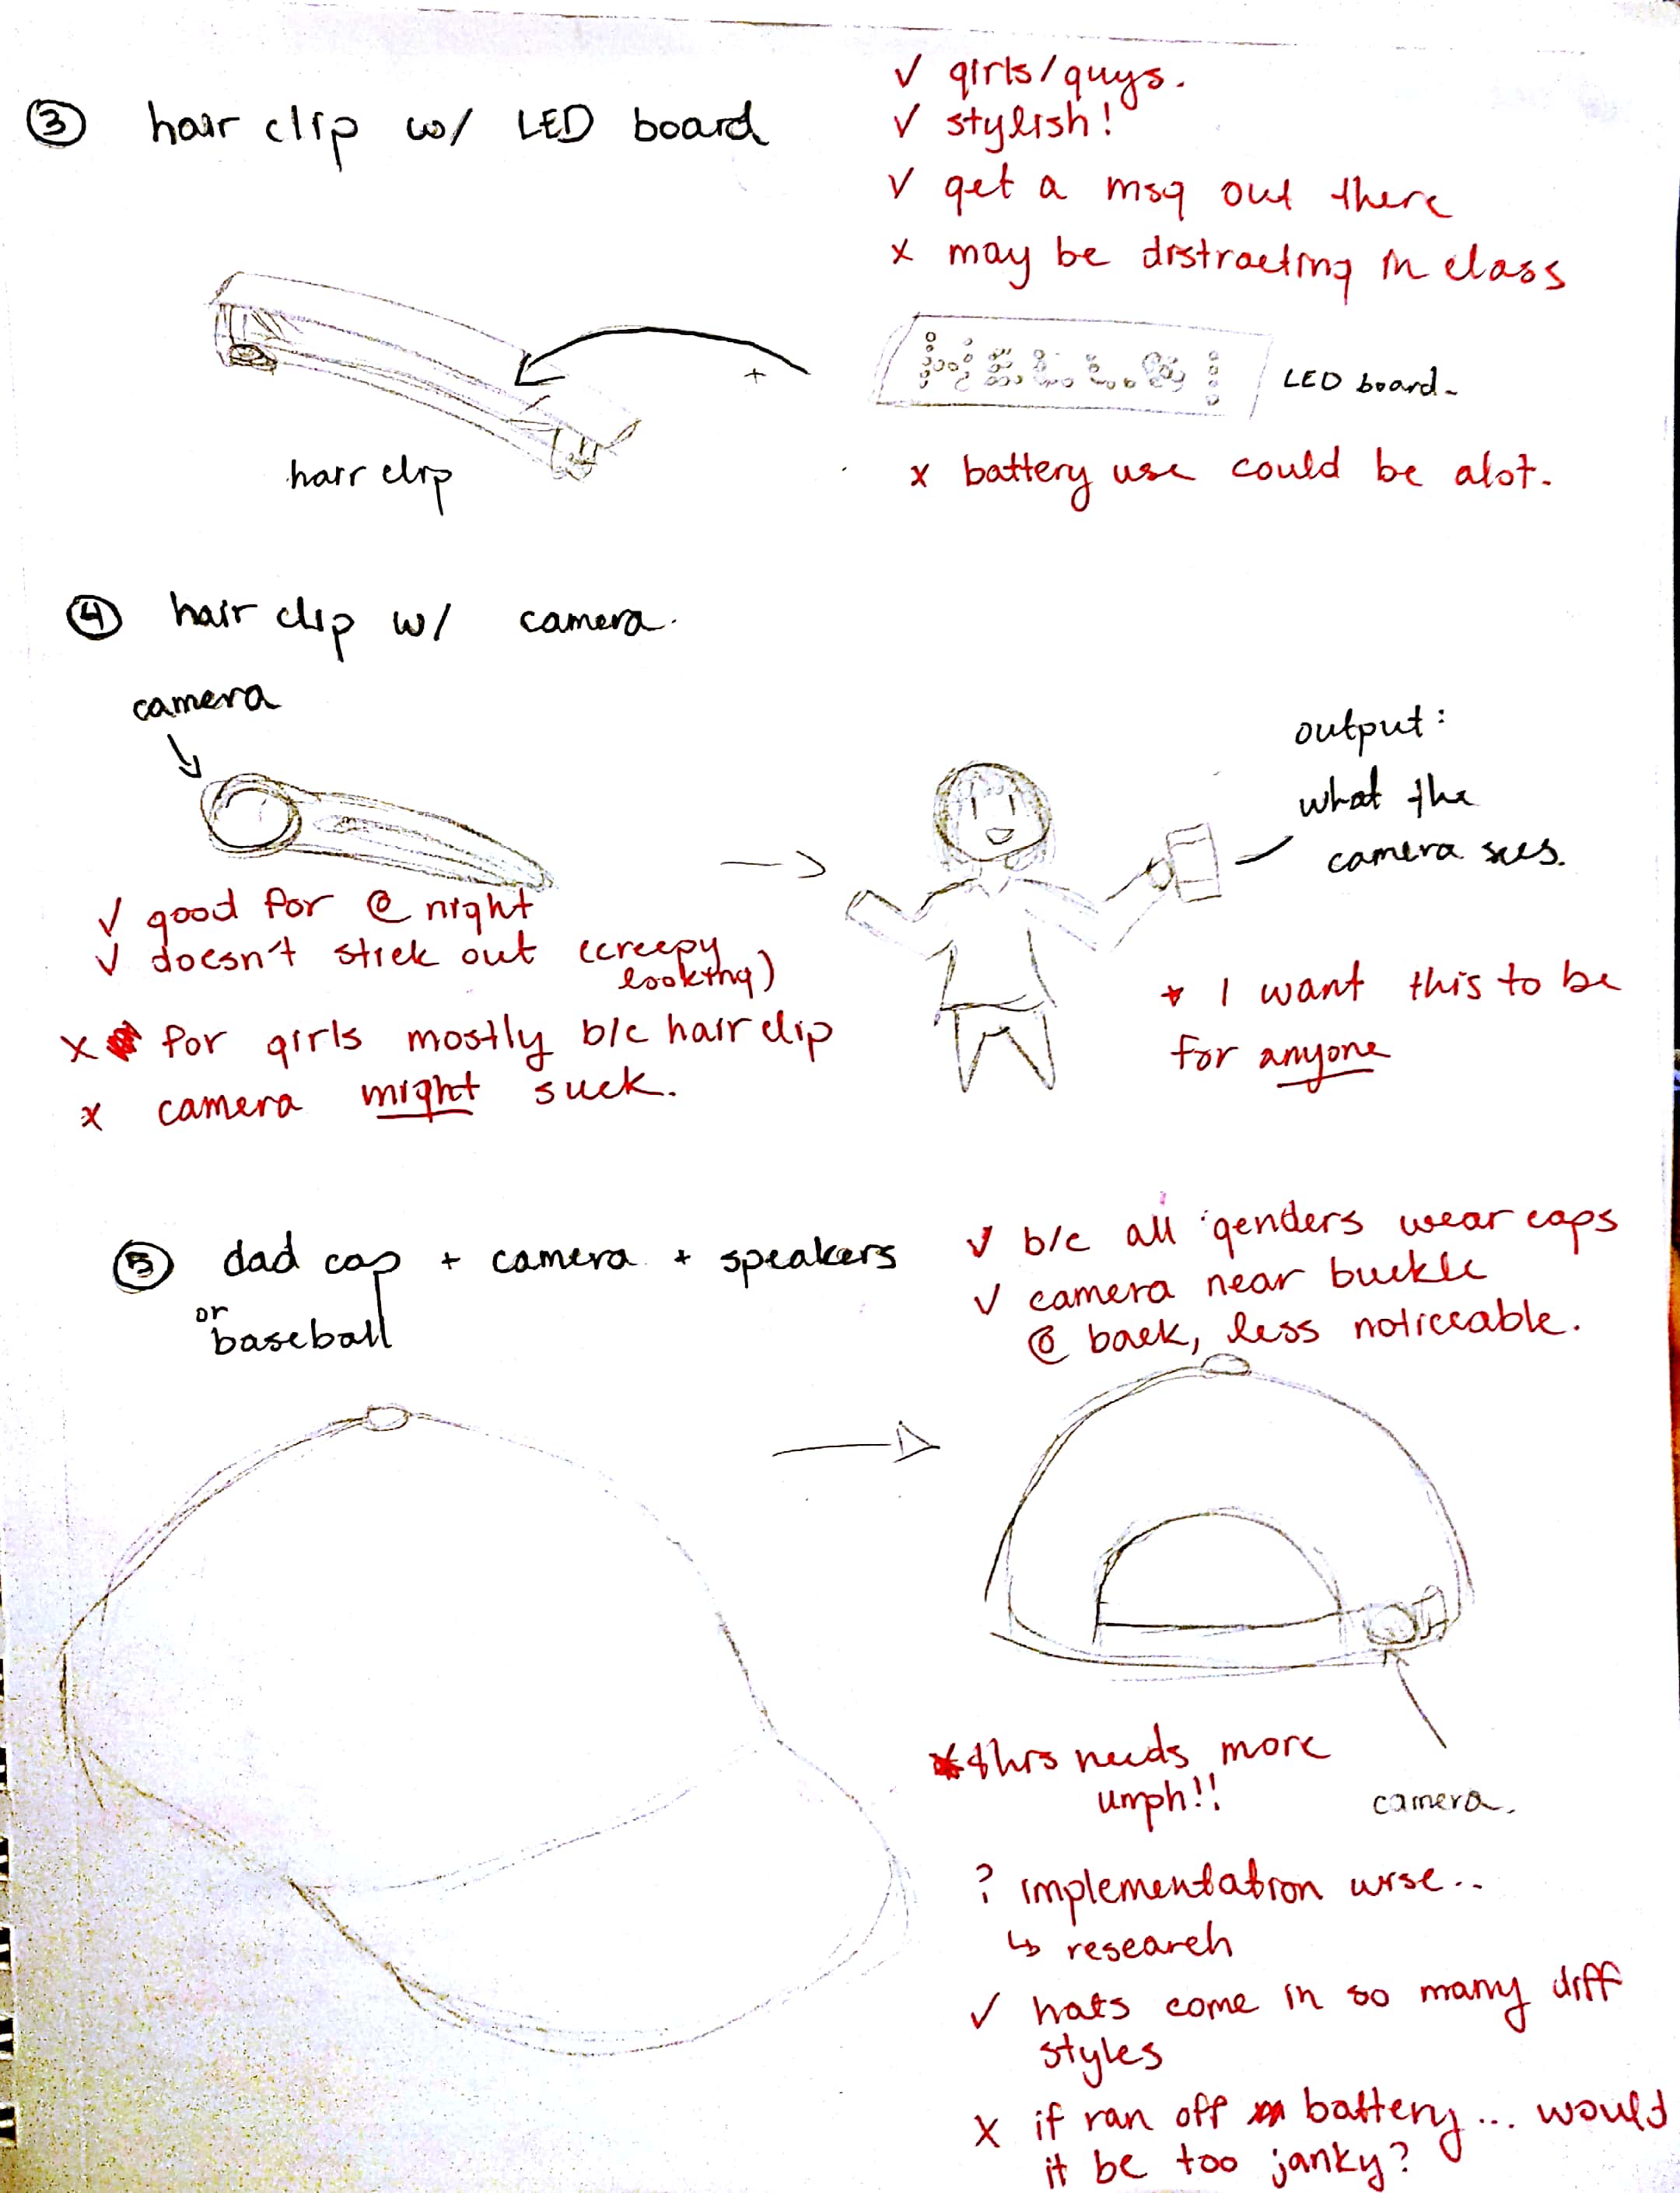 ③ hair clip w/ LED board
✓ girls/guys.
✓ stylish!
✓ get a msg out there
x may be distracting in class
+
HELLO!
LED board.
hair clip
x battery use could be alot.
④ hair clip w/ camera.
camera
output:
what the
camera sees.
✓ good for @ night
✓ doesn't stick out (creepy
looking)
x for girls mostly b/c hair clip
x camera might suck.
* I want this to be
for anyone
⑤ dad cap + camera + speakers
or
baseball
✓ b/c all genders wear caps
✓ camera near buckle
@ back, less noticeable.
* this needs more
umph!!
camera.
? implementation wise..
↳ research
✓ hats come in so many diff
styles
x if ran off battery... would
it be too janky?